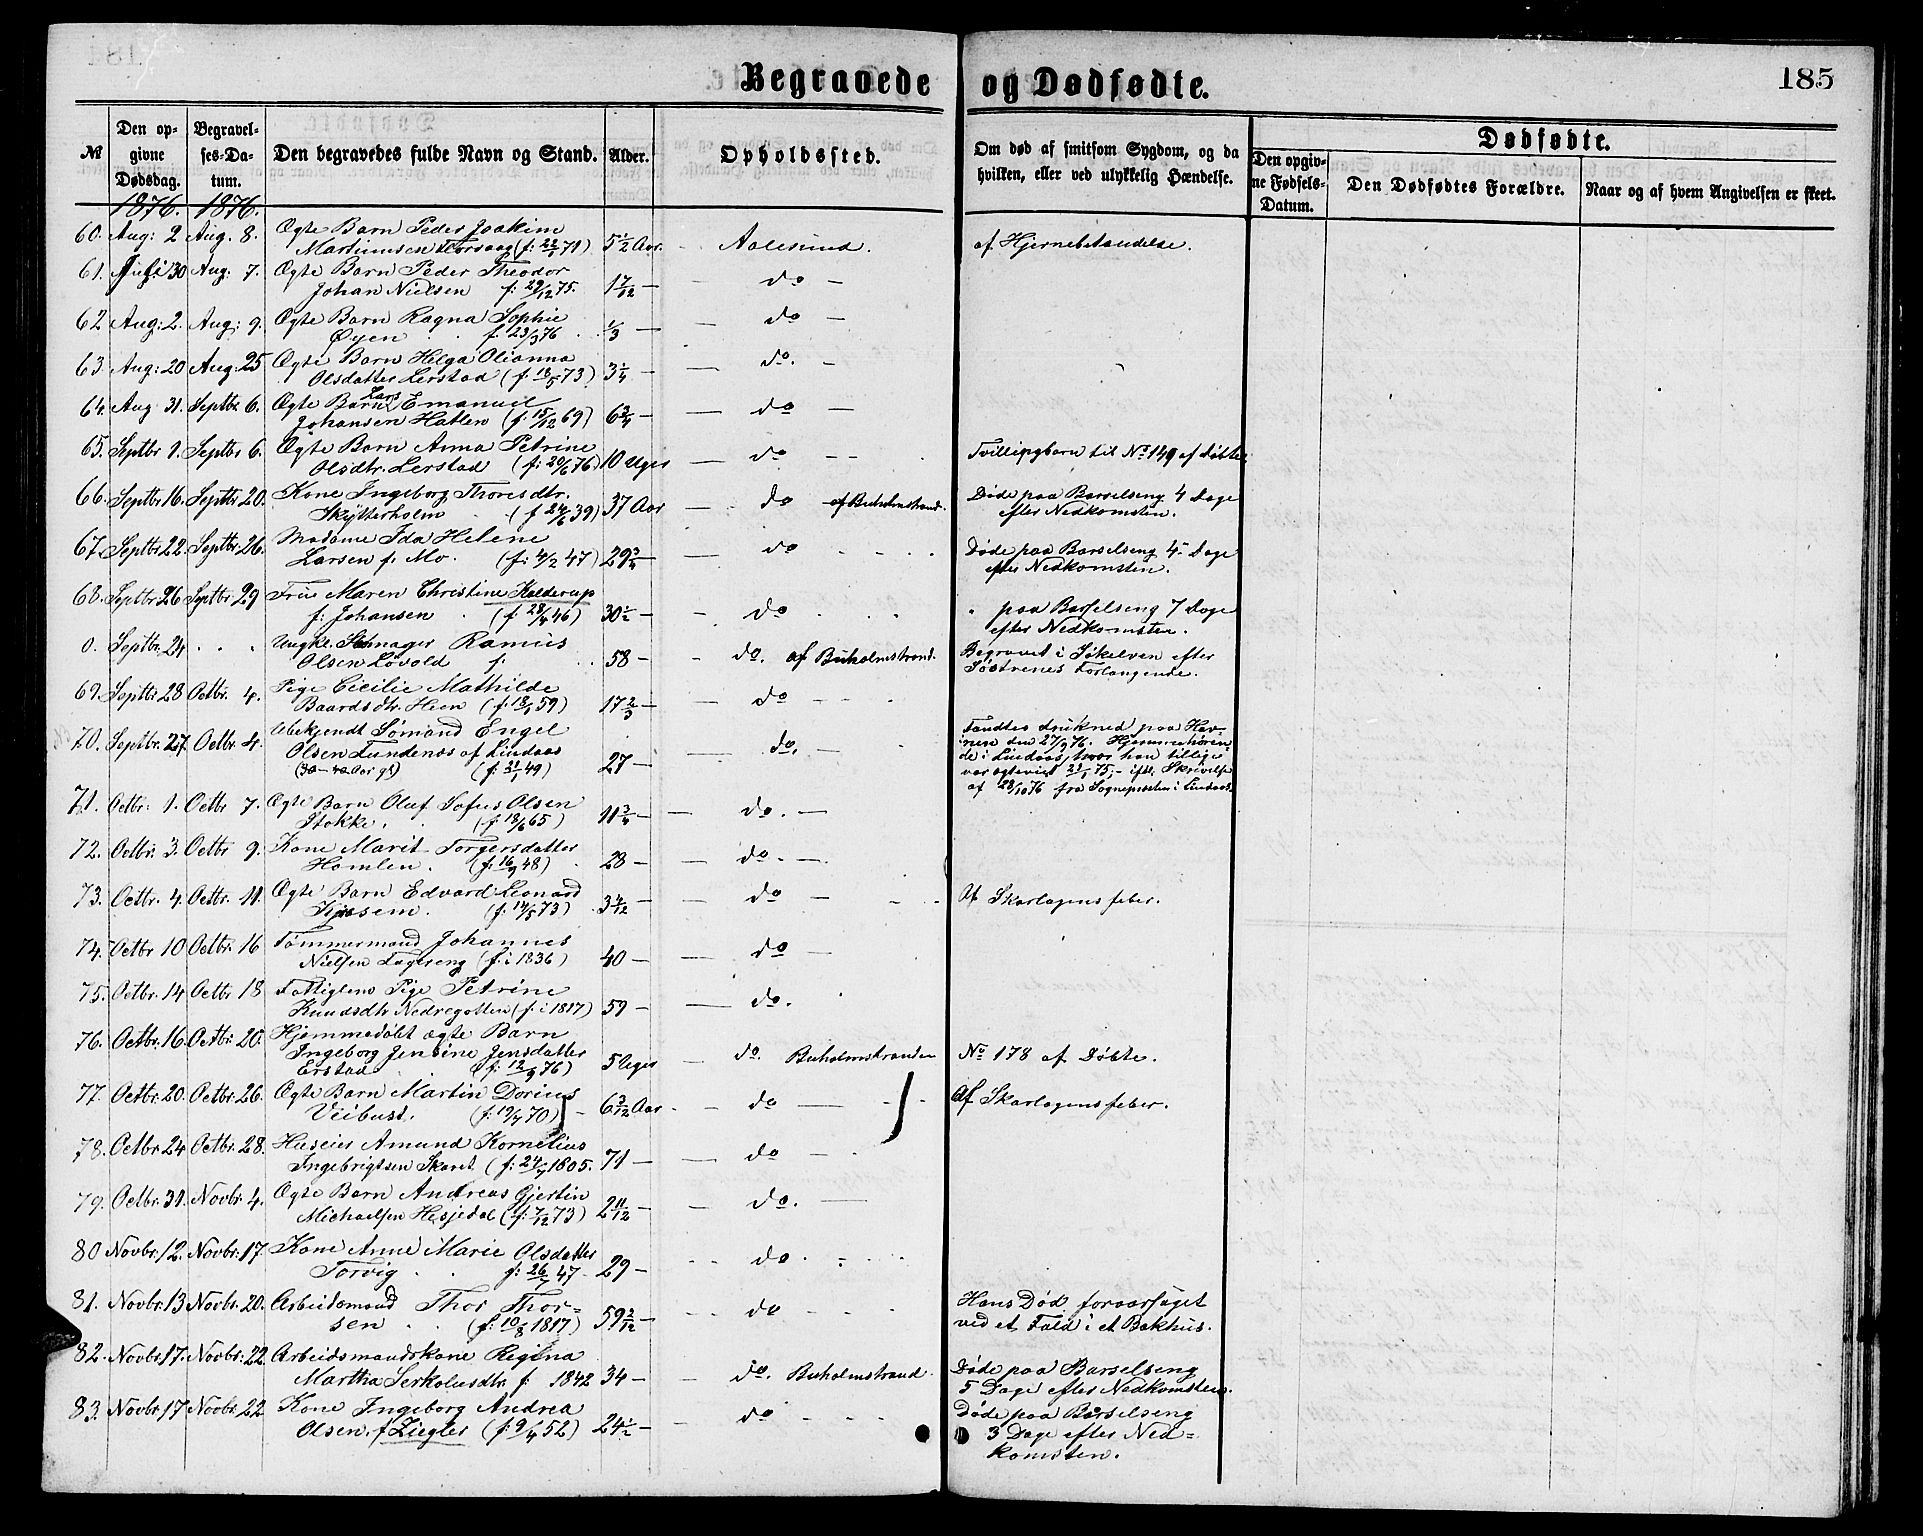 Begravede og Dødfødte.
185
№
Den op-
givne
Dødsdag.
Begravel-
ses-Da-
tum.
Den begravedes fulde Navn og Stand.
Alder.
Opholdssted.
Om død af smitsom Sygdom, og da
hvilken, eller ved ulykkelig Hændelse.
Dødfødte.
Den opgiv-
ne Fødsels-
Datum.
Den Dødfødtes Forældre.
Naar og af hvem Angivelsen er skeet.
1876. 1876.
60. Aug: 2 Aug. 8. Ægte Barn Peder Joakim
Martinusen (f: 22/1 71) 5 1/2 Aar. - Aalesund. af Hjernebetændelse.
61. Juli 30 Aug. 7. Ægte Barn Peder Theodor
Johan Nielsen f: 29/12 75. 1 7/12 - - do -
62 Aug: 2. Aug: 9. Ægte Barn Ragna Sophie
Øyen f. 23/3 76 1/3 - - do -
63. Aug: 20 Aug: 25 Ægte Barn Helga Olianna
Olsdatter Lerstad (f: 18/5 73) 3 1/4 - do. -
64. Aug 31. Septbr 6. Ægte Barn Lars Emanuel
Johansen Hatlen (f: 15/12 69) 6 3/4 - - do -
65. Septbr 1. Septbr 6. Ægte Barn Anna Petrine
Olsdtr. Lerstad (f: 20/6 76) 10 Uger - do - - Tvillingbarn til No 149 af Døbte.
66. Septbr 16. Septbr 20. Kone Ingeborg Thoresdtr.
Skytterholm (f 24/6 39) 37 Aar - do af Buholmstrand. Døde paa Barselseng 4 Dage
efter Nedkomsten.
67. Septbr. 22. Septbr. 26. Madame Ida Helene
Larsen f. Mo. (f: 4/2 47) 29 3/4 - do Døde paa Barselseng 4 Dage
efter Nedkomsten.
68. Septbr 26 Septbr 29 Frue Maren Christine Kolderup
f. Johansen (f 28/4 46) 30 1/2 - - do " paa Barselseng 7 Dage
efter Nedkomsten.
0. Septbr. 24 Ungk. Rasmus
Olsen Løvold f. 58 - - do. af Buholmstrand. Begravet i Søkelven efter
Søstrenes Forlangende.
69. Septbr 28 Octbr. 4. Pige Cicilie Mathilde
Baardsdtr. Heen (f: 18/1 59) 17 2/3 - do
70. Septbr. 27. Octbr. 4. Ubekjendt Sømand Engel
Olsen Tundenæs af Lindaas
(30-40 Aar gl) (f: 21/1 49) 27 - do. - Fandtes druknet paa Hav-
nen den 27/9 76. Hjemmehøren-
de i Lindaas, hvor han tillige
var ægteviet 23/5 75, - ifl. Skrivelse
af 28/10 76 fra Sognepræsten i Lindaas.
71. Octbr: 1. Octbr 7. Ægte Barn Oluf Sofus Olsen
Stokke. (f: 18/6 65) 11 3/4 - do. -
72. Octbr. 3. Octbr 9. Kone Marit Torgersdatter
Hamlen. (f: 16/9 48) 28 - - do. -
73. Octbr. 4. Octbr. 11. Ægte Barn Edvard Leonard
(f: 14/5 73) 3 4/12 - do - Af Skarlagensfeber.
74. Octbr 10 Octbr. 16 Tømmermand Johannes
Nielsen Fagereng (f. i 1836) 40 - - do -
75. Octbr. 14 Octbr 18 Fattiglem Pige Petrine
Knudsdtr Nedregotten (f. i 1817) 59 - - do.
76. Octbr. 16. Octbr. 20. Hjemmedøbt ægte Barn
Ingeborg Jensine Jensdatter
Erstad (f: 12/9 76) 5 Uger - do. Buholmstranden No 178 af Døbte.
77. Octbr. 20. Octbr. 26. Ægte Barn Martin Dorius
Veibust. (f: 19/7 70) - 6 3/12 Aar - - do - Af Skarlagensfeber.
78. Octbr 24 Octbr. 28. Huseier Amund Kornelius
Ingebrigtsen Skaret (f: 24/7 1805. 71 - do -
79. Octbr. 31. Novbr. 4. Ægte Barn Andreas Gjertin
Michaelsen Hesjedal (f: 7/12 73) 2 11/12 - - do. -
80 Novbr. 12. Novbr. 17. Kone Anne Marie Olsdatter
Torvig f: 26/7 47 - 29 - do
81. Novbr. 13 Novbr. 20. Arbeidsmand Thor Thor-
sen (f: 10/8 1817) 59 3/12 - - do Hans Død foraarsaget
ved et Fald i et Bakhus.
82. Novbr. 17. Novbr: 22 Arbeidsmandskone Regina
Martha Serkolusdtr f. 1842 34 - - do. Buholmstrand. Døde paa Barselseng
5 Dage efter Nedkomsten.
83. Novbr 17 Novbr. 22 Kone Ingeborg Andrea
Olsen. f Ziegler (f: 9/4 52) 24 1/2 - - do Døde paa Barselseng
3 Dage efter Ned-
komsten.